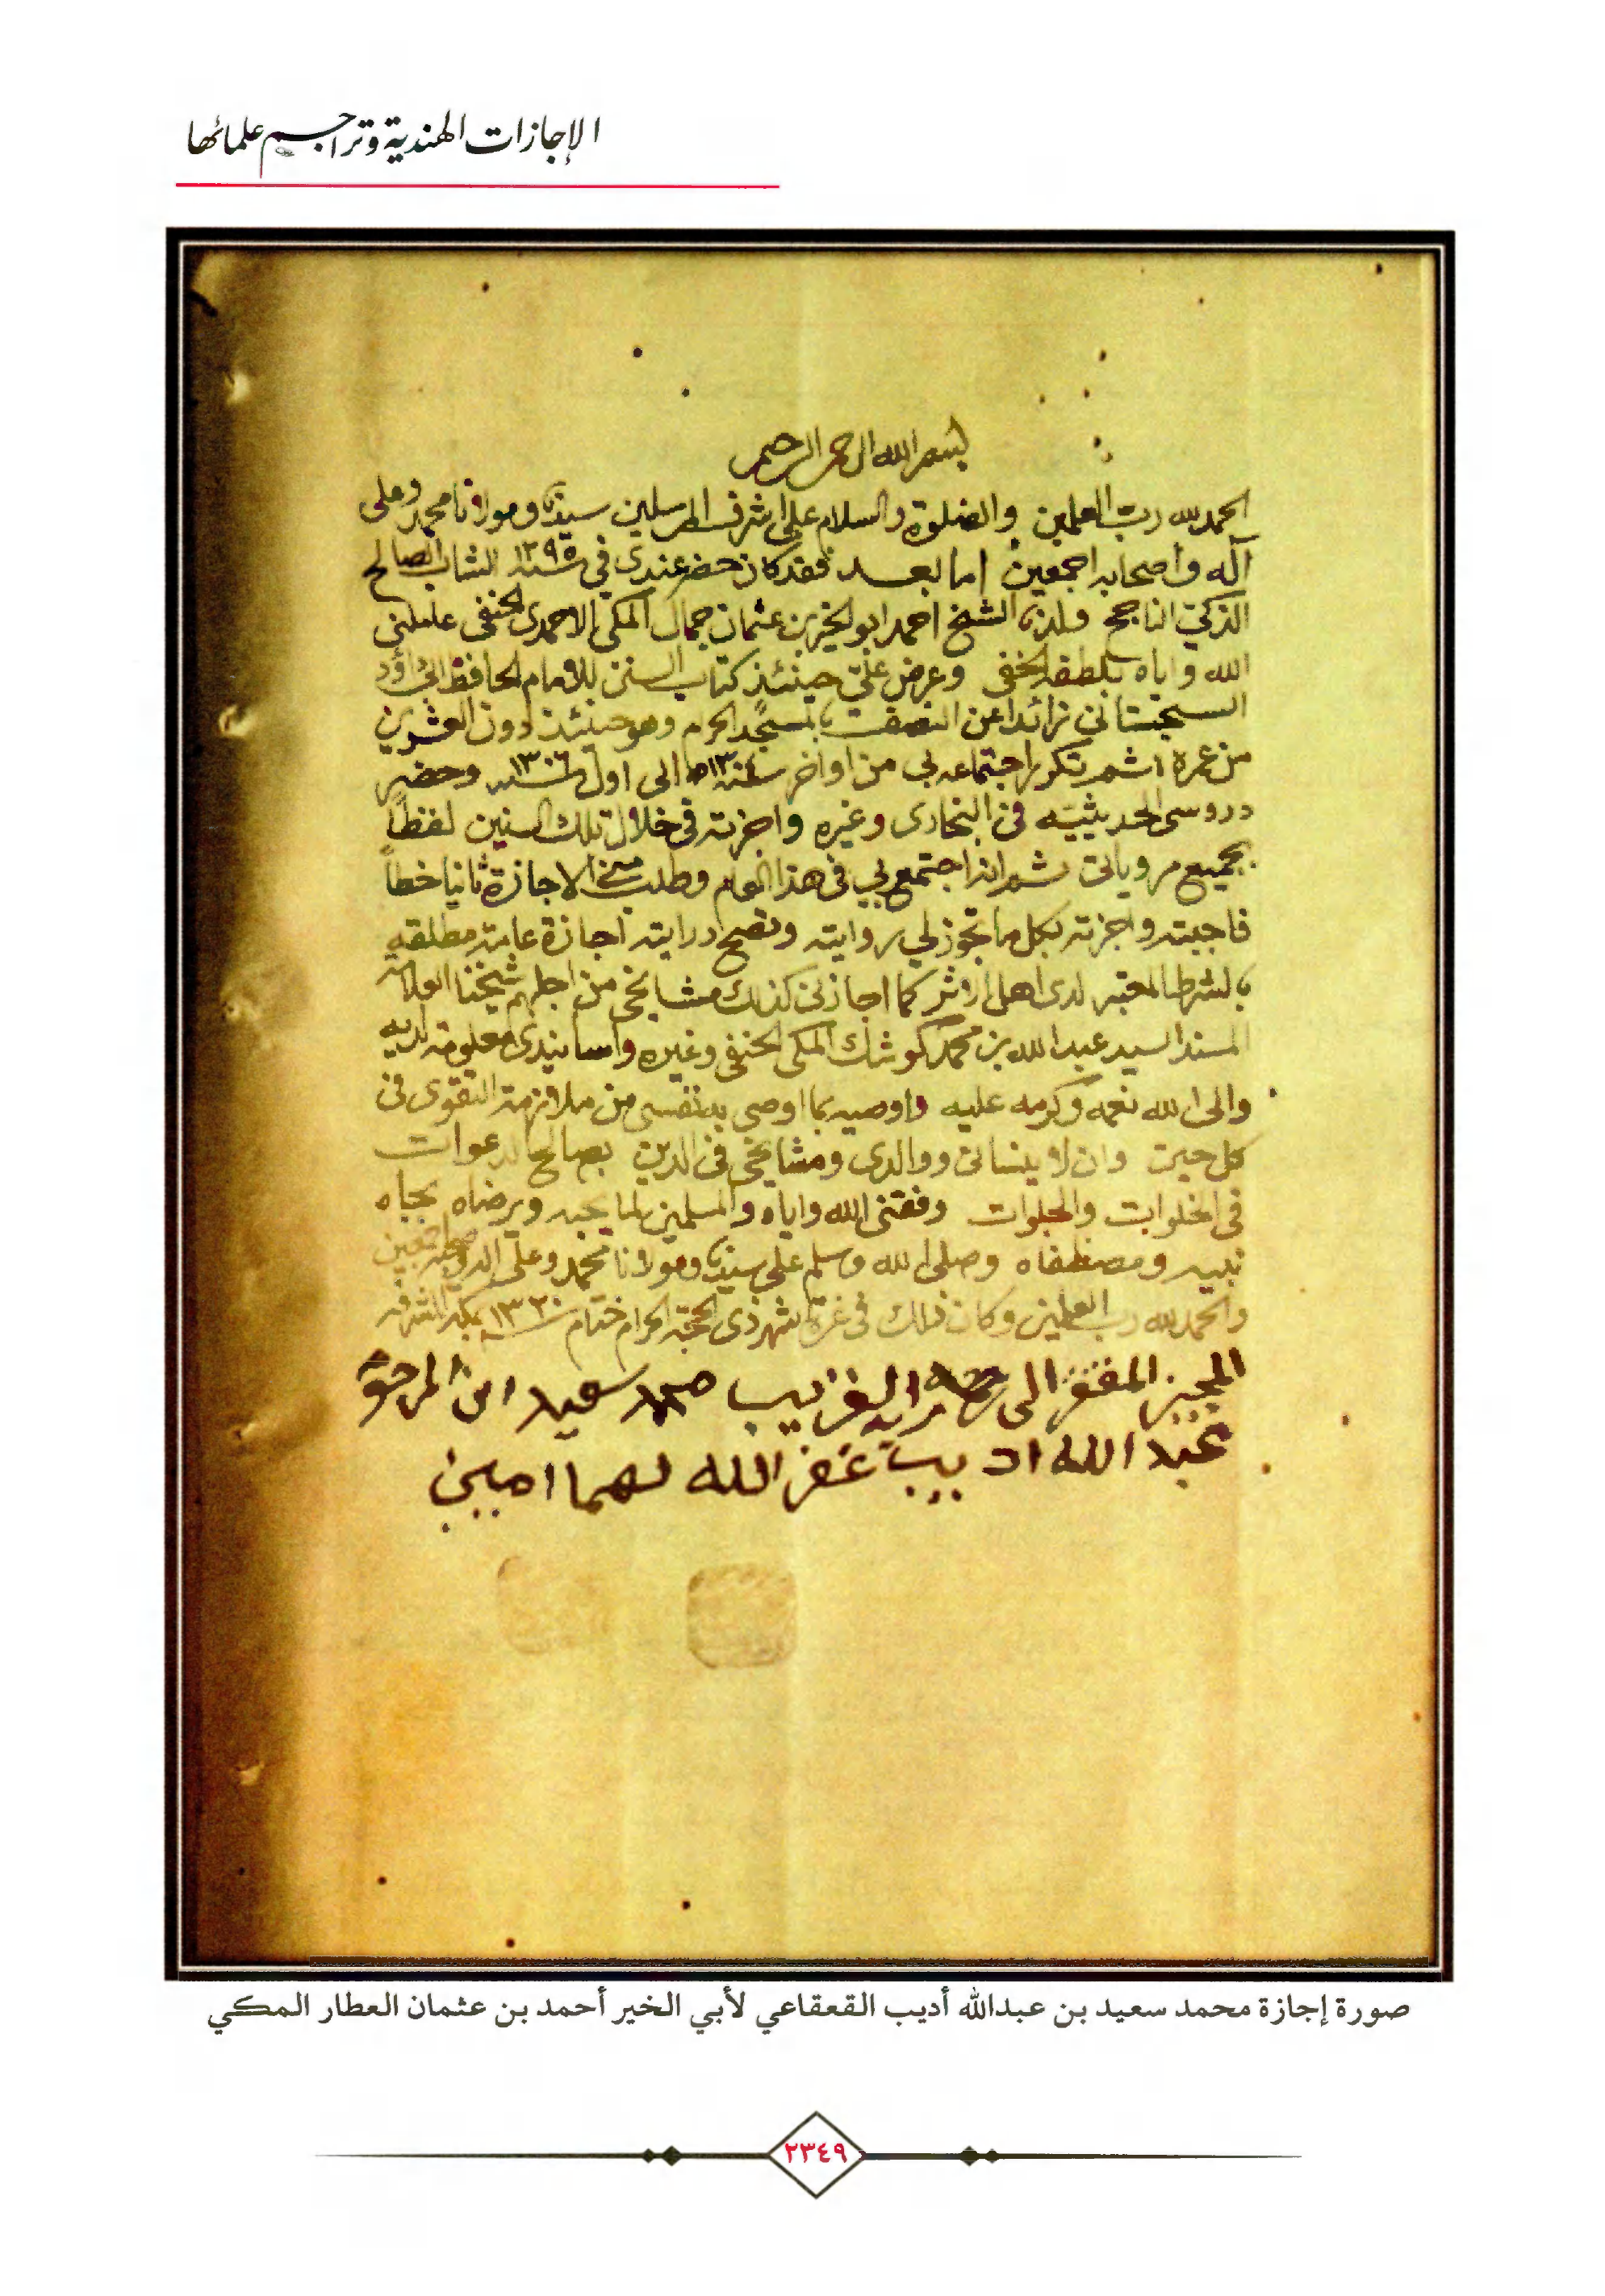 الإجازات الهندية وتراجم علمائها
بسم الله الرحمن الرحيم
الحمد لله رب العلمين والصلوة والسلام على اشرف المرسلين سيدنا ومولانا محمد وعلى
آله واصحابه اجمعين اما بعد فقد كان حضر عندي في سنة ١٢٩٥ الشاب الصالح
الذكي الناجح ولدنا الشيخ احمد ابو الخير بن عثمان جمال المكي الاحمدي الحنفي عاملني
الله واياه بلطفه الخفي وعرض علي حينئذ كتاب السنن للامام الحافظ ابي داؤد
السجستاني زائدا عن النصف بالمسجد الحرام وهو حينئذ دون العشرين
من عمره ثم تكرر اجتماعه بي من اواخر سنة الى اول سنة ١٣٠٦ وحضر
دروسي الحديثية في البخاري وغيره واجزته في خلال تلك السنين لفظاً
بجميع مروياتي ثم انه اجتمع بي في هذا العام وطلب مني الاجازة ثانيا خطاً
فاجبته واجزته بكل ما تجوز لي روايته وتصح درايته اجازة عامة مطلقه
بالشرط المعتبر لدى اهل الاثر كما اجازني كذلك مشايخي من اجلهم شيخنا العلامه
المسند السيد عبد الله بن محمد كوشك المكي الحنفي وغيره واسانيدي معلومة لديه
والى الله نعمه وكرمه عليه واوصيه بما اوصي به نفسي من ملازمة التقوى في
كل حين وان لا ينساني ووالدي ومشايخي في الدين بصالح الدعوات
في الخلوات والجلوات وفقني الله واياه والمسلمين لما يحبه ويرضاه بجاه
نبيه ومصطفاه وصلى الله وسلم على سيدنا ومولانا محمد وعلى اله وصحبه اجمعين
والحمد لله رب العلمين وكان ذلك في غرة شهر ذي الحجة الحرام ختام سنة ١٣٢٠ بمكة المشرفه
المجيز المفتقر الى رحمة ربه القريب محمد سعيد ابن المرحوم
عبد الله اديب غفر الله لهما امين
صورة إجازة محمد سعيد بن عبدالله أديب القعقاعي لأبي الخير أحمد بن عثمان العطار المكي
٢٣٤٩